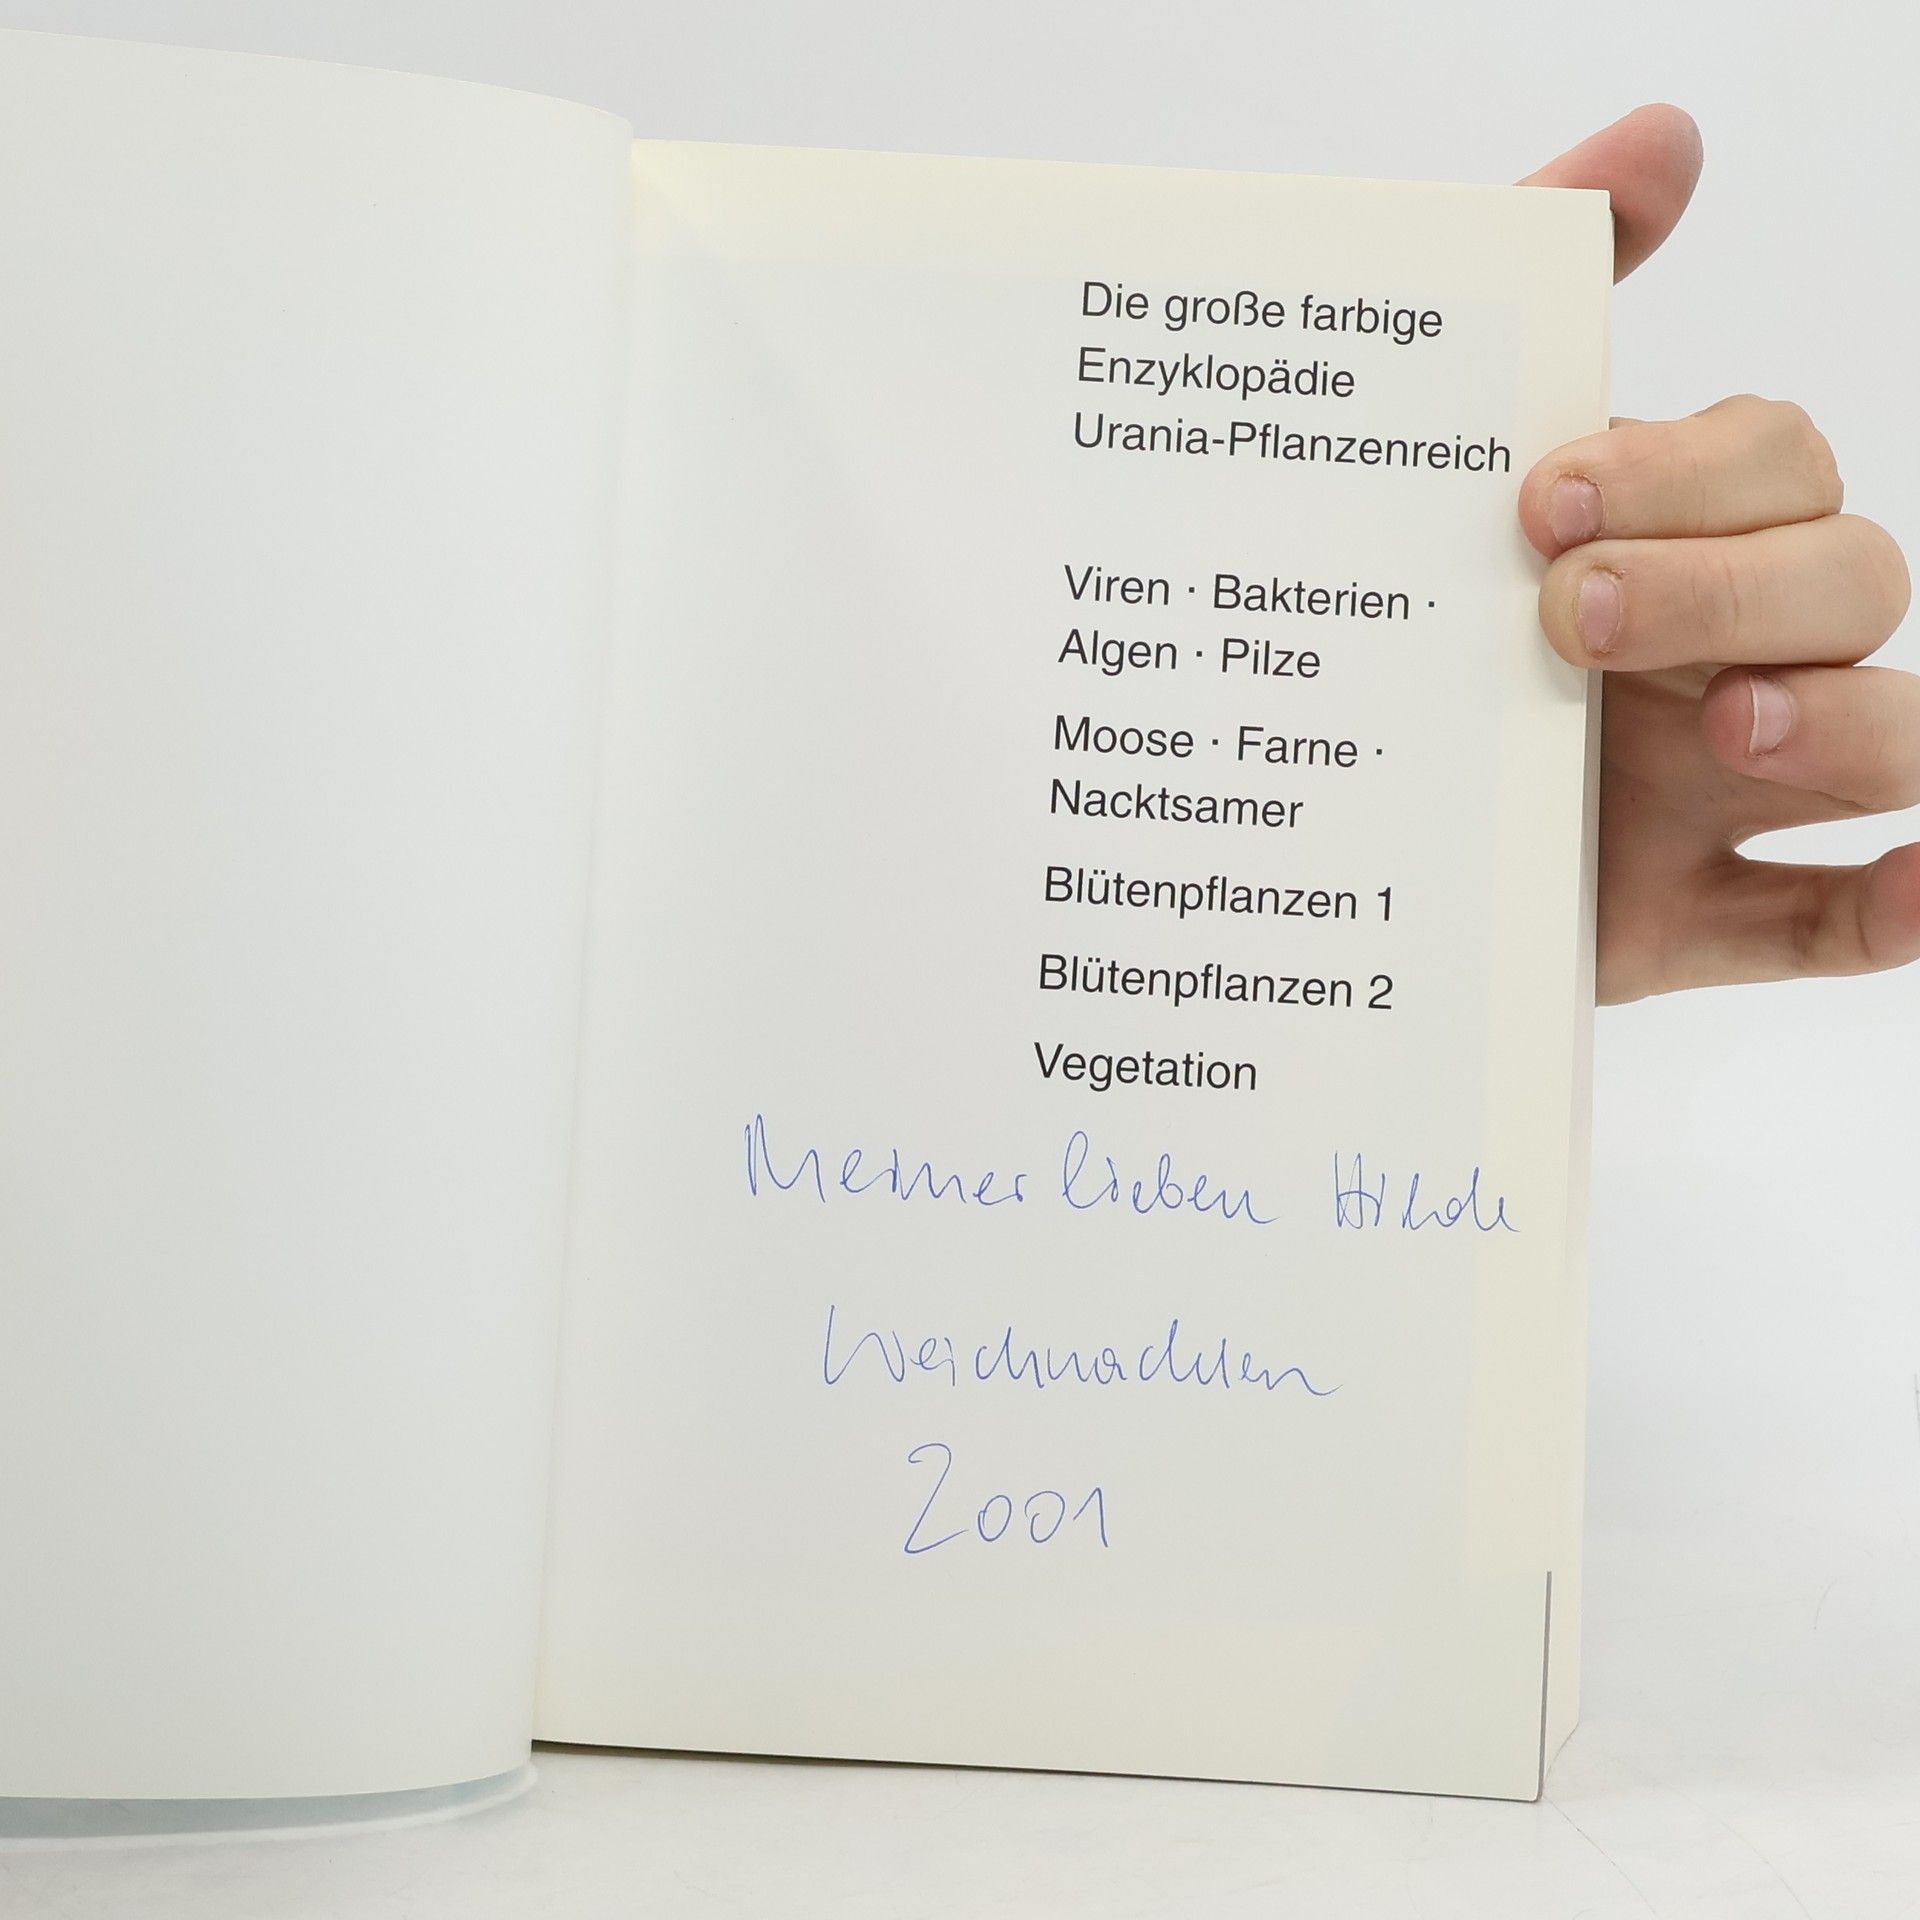 Die große farbige
Enzyklopädie
Urania-Pflanzenreich
Viren · Bakterien ·
Algen · Pilze
Moose · Farne ·
Nacktsamer
Blütenpflanzen 1
Blütenpflanzen 2
Vegetation
Meiner lieben Hilde
Weihnachten
2001